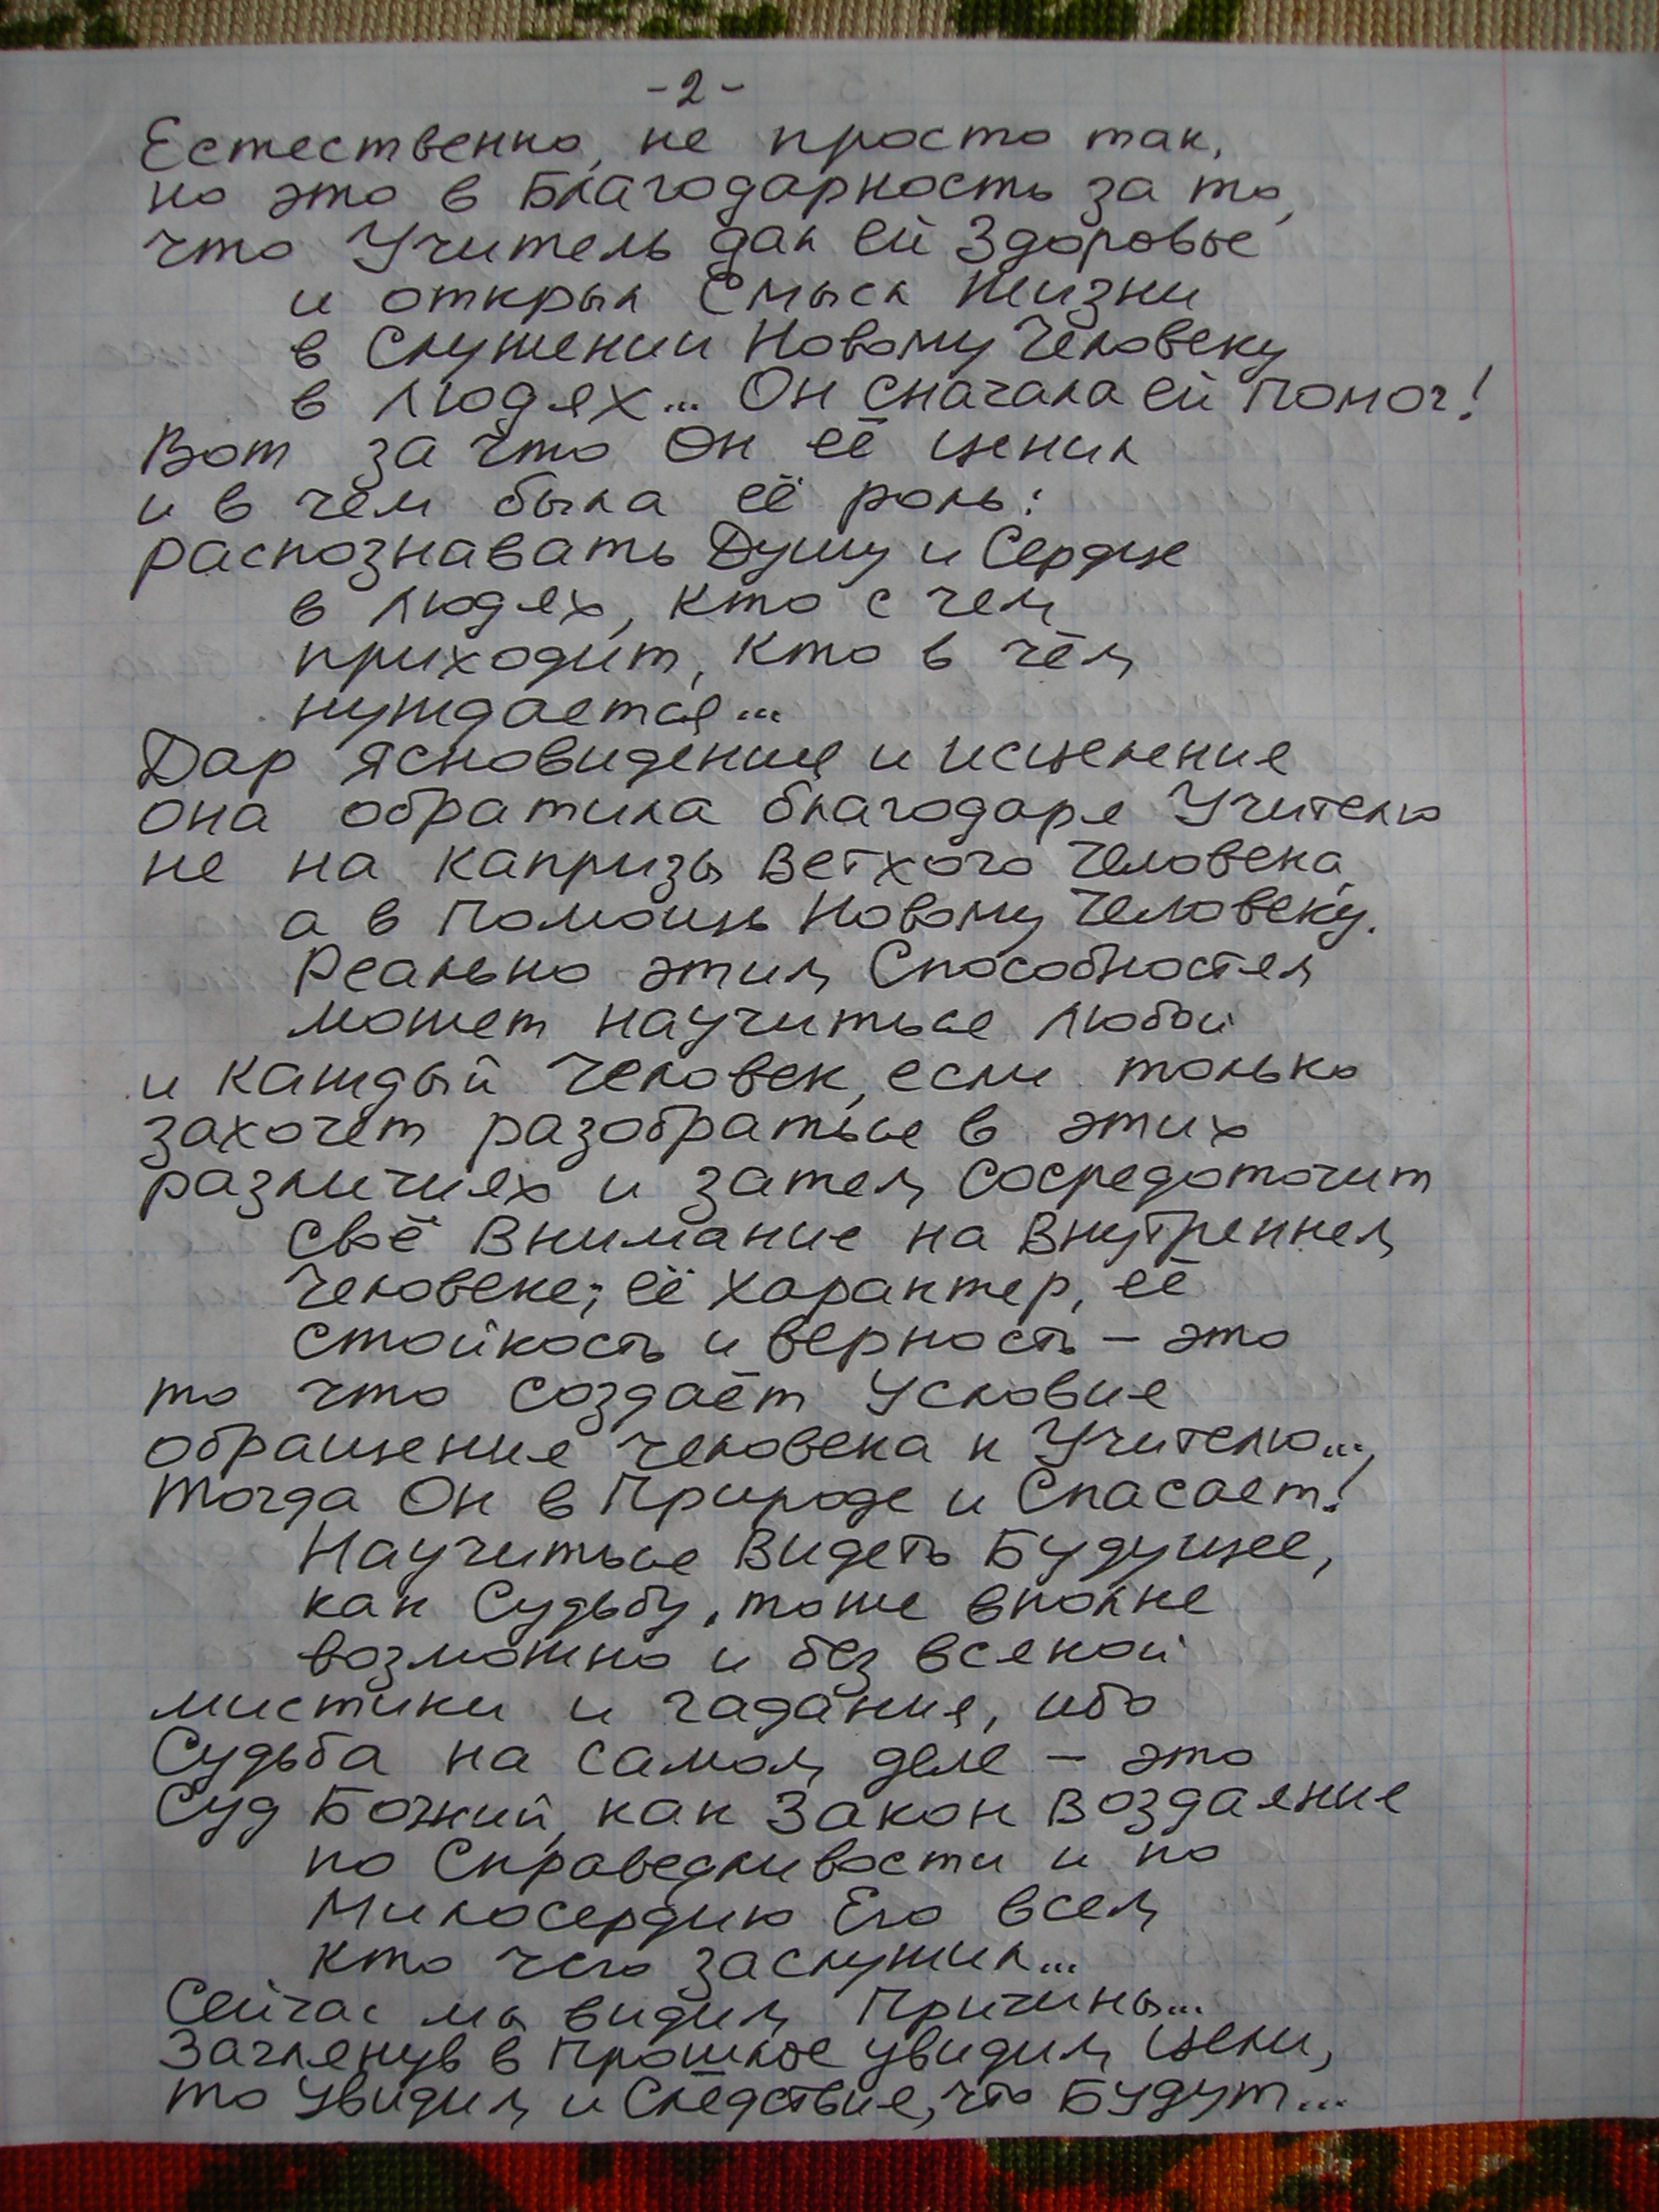 -2-
Естественно, не просто так,
но это в Благодарность за то,
что Учитель дал ей Здоровье
и открыл Смысл Жизни
в Служении Новому Человеку
в людях... Он сначала ей помог!
Вот за что Он её ценил
и в чём была её роль:
распознавать Душу и Сердце
в людях, кто с чем
приходит, кто в чём
нуждается...
Дар Ясновидения и исцеления
она обратила благодаря Учителю
не на капризы Ветхого Человека,
а в помощь Новому Человеку.
Реально этим Способностям
может научиться любой
и каждый Человек, если только
захочет разобраться в этих
различиях и затем сосредоточит
своё Внимание на Внутреннем
Человеке; её характер, её
стойкость и верность – это
то что создаёт Условие
обращения человека к Учителю...,
тогда Он в Природе и Спасает!
Научиться Видеть Будущее,
как Судьбу, тоже вполне
возможно и без всякой
мистики и гадания, ибо
Судьба на самом деле – это
Суд Божий, как Закон Воздаяния
по Справедливости и по
Милосердию Его всем
кто чего заслужил...
Сейчас мы видим Причины...
Заглянув в Прошлое увидим Цели,
то Увидим и Следствия, что Будут...